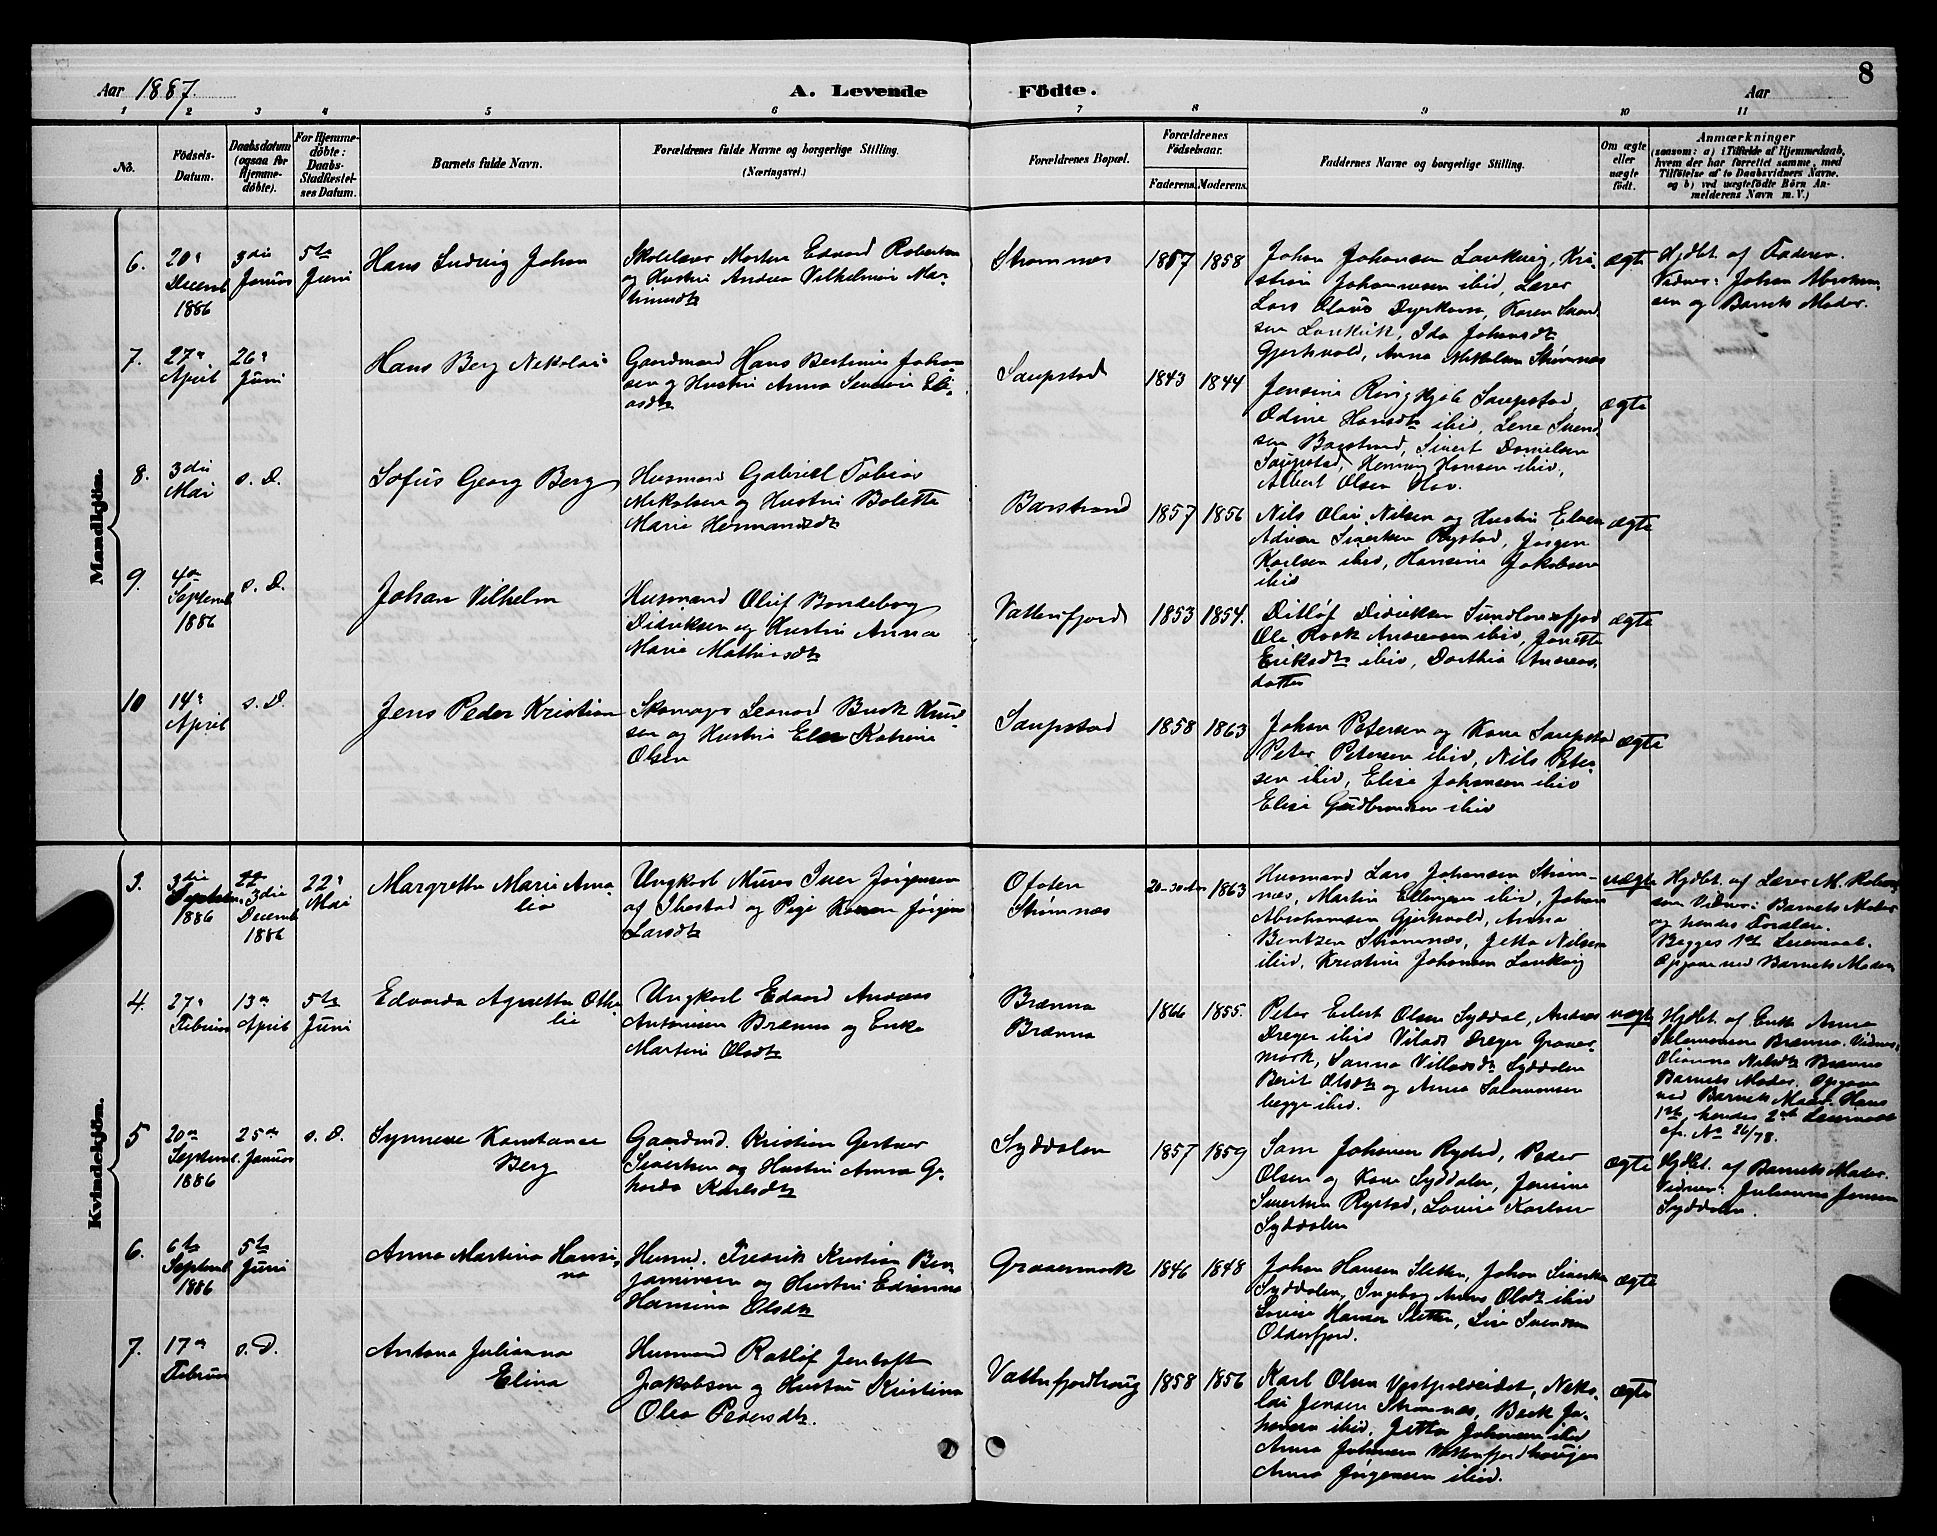 8
Aar 1887.
A. Levende Födte.
Aar
1 2 3 4 5 6 7 8 9 10 11
No.
Födsels-Datum.
Daabsdatum (ogsaa for Hjemmedöbte).
For Hjemmedöbte: Daabs-Stadfæstelses Datum.
Barnets fulde Navn.
Forældrenes fulde Navne og borgerlige Stilling.
(Næringsvei.)
Forældrenes Bopæl.
Forældrenes Fødselsaar.
Faderens. Moderens.
Faddernes Navne og borgerlige Stilling.
Om ægte eller uægte födt.
Anmærkninger
(saasom: a) i Tilfælde af Hjemmedaab,
hvem der har forrettet samme, med
Tilföielse af to Daabsvidners Navne.
og b) ved uægtefödte Börn An-
melderens Navn m. V.)
Mandkjön.
6. 20de Decemb 1886
3die Januar
5te Juni
Hans Ludvig Johan
Skolelærer Morten Edvard Robertsen
og Hustru Andrea Vilhelmine Mar-
tinusdtr
Strømnes
1857 1858
Johan Johansen Laukvig, Kri-
stine Johannesen ibid, Lærer
Lars Olaus Dyrkorn, Karen
Laukvik, Ida Johansdtr
Gjerkvold, Anna Mikkelsen Strømnes
ægte
Hjdbt. af Faderen.
Vidner: Johan Abraham-
sen og Barnets Moder.
7. 27de April
26de Juni
Hans Berg Nikolai
Gaardmand Hans Bertinus Johan-
sen og Hustru Anna Severine Eli-
asdtr
Saupstad
1843 1844
Jensine Ringkjøb Saupstad,
Odine Hansdtr ibid, Lene Svend-
sen Barstrand, Sivert Danielsen
Saupstad, Henning Hansen ibid,
Albert Olsen Hov.
ægte
8. 3die Mai
s. D.
Sofus Georg Berg
Husmand Gabriel Tobias
Nikolsen og Hustru Bolette
Marie Hermansdtr
Barstrand
1857 1856
Nils Olai Nilsen og Hustru Elen
Adriane Sivertsen Rystad, Jørgen
Karlsen ibid, Hansine Jakobsen
ibid
ægte
9. 4de Septemb 1886
s. D.
Johan Vilhelm
Husmand Oluf Bondeborg
Didriksen og Hustru Anna
Marie Mathisdtr
Vatterfjord
1853 1854.
Ditløf Didriksen Sundlandsfjord
Ole Rask Andreassen ibid, Janette
Eriksdtr ibid, Dorthea Andreas-
datter
ægte
10 14de April
s. D.
Jens Peder Kristian
Skomager Leonard Buck Knud-
sen og Hustru Elen Katrine
Olsen
Saupstad
1858 1863
Johan Petersen og Kone Saupstad
Peter Petersen ibid, Nils Peter-
sen ibid, Elise Johansen ibid
Elise Gudbrandsen ibid
ægte
Kvindekjön.
3. 3die Septemb 1886
3die Decemb 1886
22de Mai
Margrethe Marie Ama-
lia
Ungkarl Murer Iver Jørgensen
af Ibestad og Pige Karen Jørgine
Larsdtr
Ofoten
Strømnæs
20-30 Aar 1863
Husmand Lars Johansen Strøm-
nes, Martin Ellingsen ibid, Johan
Abrahamsen Gjerkvold, Anna
Bentzen Strømnæs, Jetta Nilsen
ibid, Kristine Johansen Laukvig
uægte
Hjdbt. af Lærer M. Robert-
sen Vidner: Barnets Moder
og hendes Forældre.
Begges 1ste Leiermaal.
Opgave ved Barnets Moder
4. 27de Februar
13de April
5te Juni
Edvarda Agnetha Othi-
lie
Ungkarl Edvard Andreas
Antonisen Brænna og Enke
Martine Olsdtr
Brænna
Brænna
1866 1855.
Peter Eilert Olsen Syddal, Andreas
Dreyer ibid Vilads Dreyer Graver-
mark, Sanna Villadsdtr Syddalen
Berit Olsdtr og Anna Salamonsen
begge ibid.
uægte
Hjdbt. af Enke Anna
Salamonsen Brænna. Vidner:
Olianna Nilsdtr Brænna
Barnets Moder. Opgave
ved Barnets Moder. Hans
1ste, hendes 2det Leiermaal
cfr. No 26/78.
5 20de Septemb. 1886
25de Januar
s. D.
Synneve Konstance
Berg
Gaardmd. Kristian Gertner
Sivertsen og Hustru Anna Ge-
harda Karlsdtr
Syddalen
1857 1859
Sam Johansen Rystad, Peder
Olsen og Kone Syddalen, Jensine
Sivertsen Rystad, Lovise Karlsen
Syddalen
ægte
Hjdbt. af Barnets Moder.
Vidner: Julianna Jensen
Syddalen.
6. 6te Septemb 1886
5te Juni
Anna Martina Hansi-
na
Husmd. Fredrik Kristian Ben-
jaminsen og Hustru Edianna
Hansina Olsdtr
Gravermark
1846 1848
Johan Hansen Sletten, Johan Sivertsen
Syddalen, Ingeborg Anna Olsdtr ibid
Lovise Hansen Sletten, Lise Svendsen
Olderfjord.
ægte
7. 17de Februar
s. D.
Antona Julianna
Elina
Husmand Ratløf Jentoft
Jakobsen og Hustru Kristina
Olea Pedersdtr.
Vatterfjordhaug
1858 1856
Karl Olsen Vestpoldeidet, Niko-
lai Jensen Strømnæs, Berk Jo-
hansen ibid, Jetta Johansen ibid
Anna Johansen Vatterfjordhaugen
Anna Jørgensen ibid.
ægte